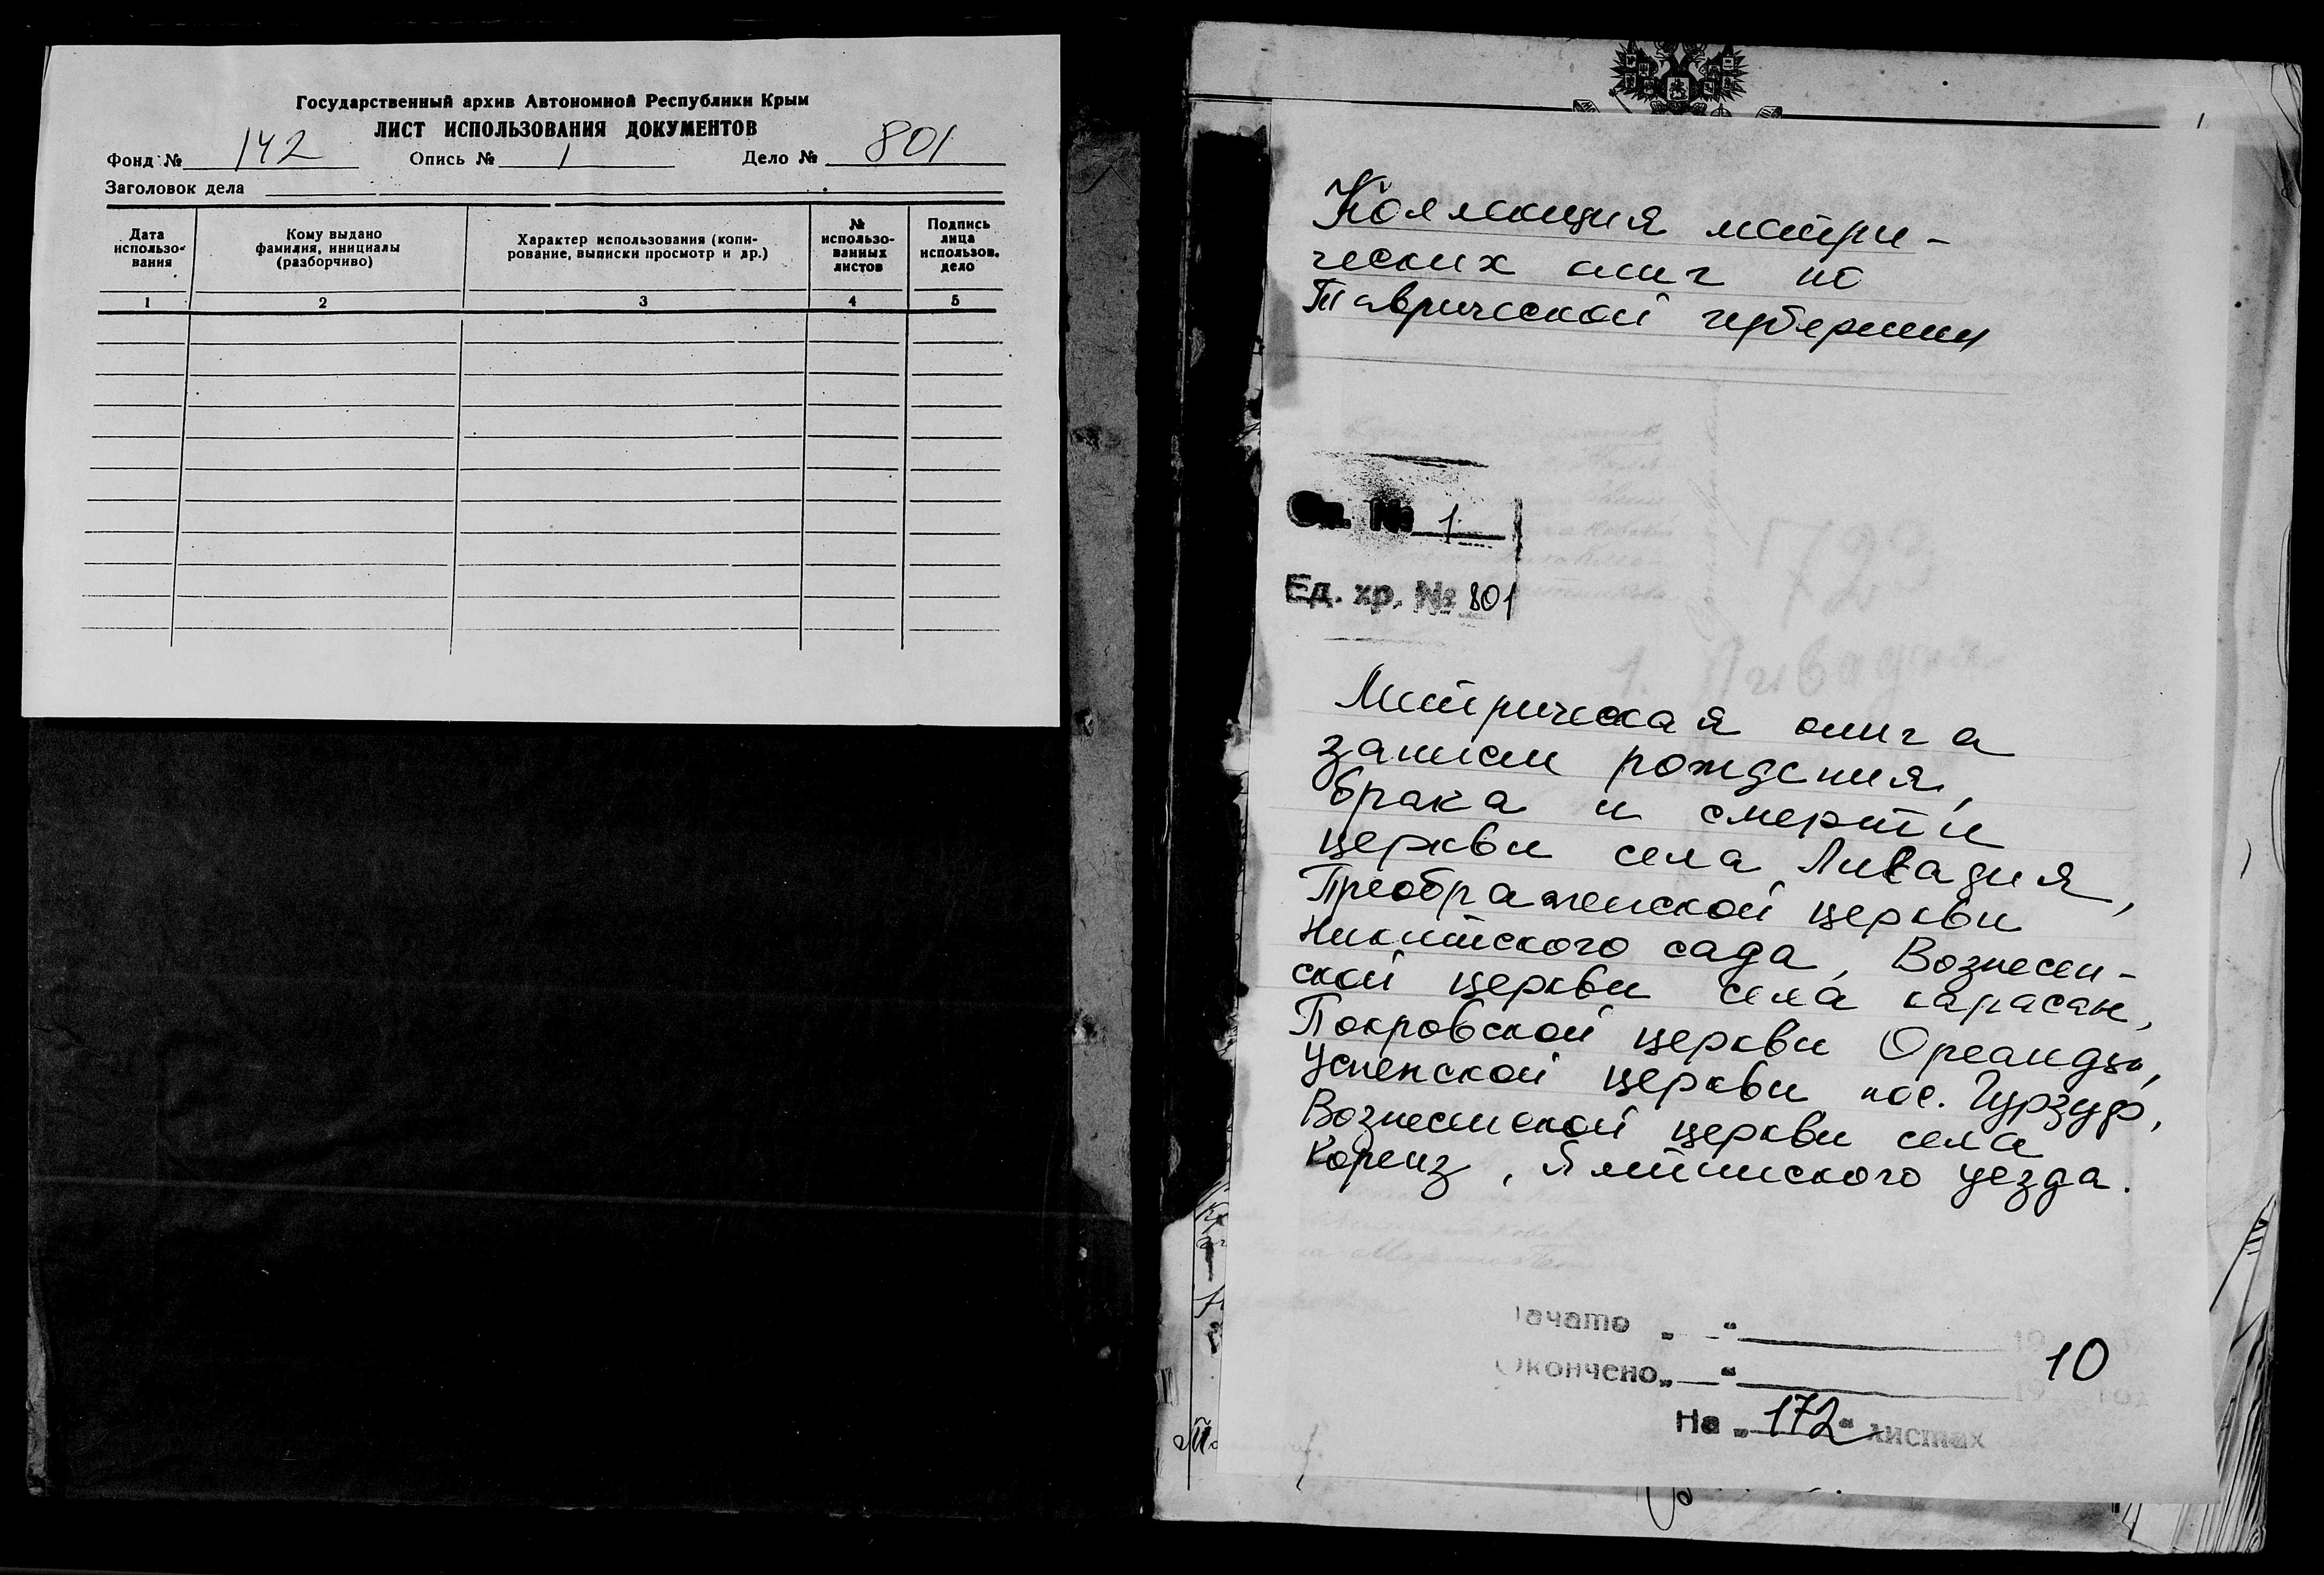 Государственный архив Автономной Республики Крым
ЛИСТ ИСПОЛЬЗОВАНИЯ ДОКУМЕНТОВ
Фонд № 142 Опись № 1 Дело № 801
Заголовок дела
Дата использо-вания
Кому выдано фамилия, инициалы (разборчиво)
Характер использования (копи-рование, выписки просмотр и др.)
№ использо-ванных листов
Подпись лица использов. дело
1 2 3 4 5
1
Коллекция метри-
ческих книг по
Таврической губернии
Оп. № 1
Ед. хр. № 801
Метрическая книга
записи рождения,
брака и смерти
церкви села Ливадия,
Преображенской церкви
Никитского сада, Вознесен-
ской церкви села Карасан,
Покровской церкви Ореанды,
Успенской церкви пос. Гурзуф,
Вознесенской церкви села
Кореиз, Ялтинского уезда.
Начато „ “
Окончено „ “ 10
На „172“ листах